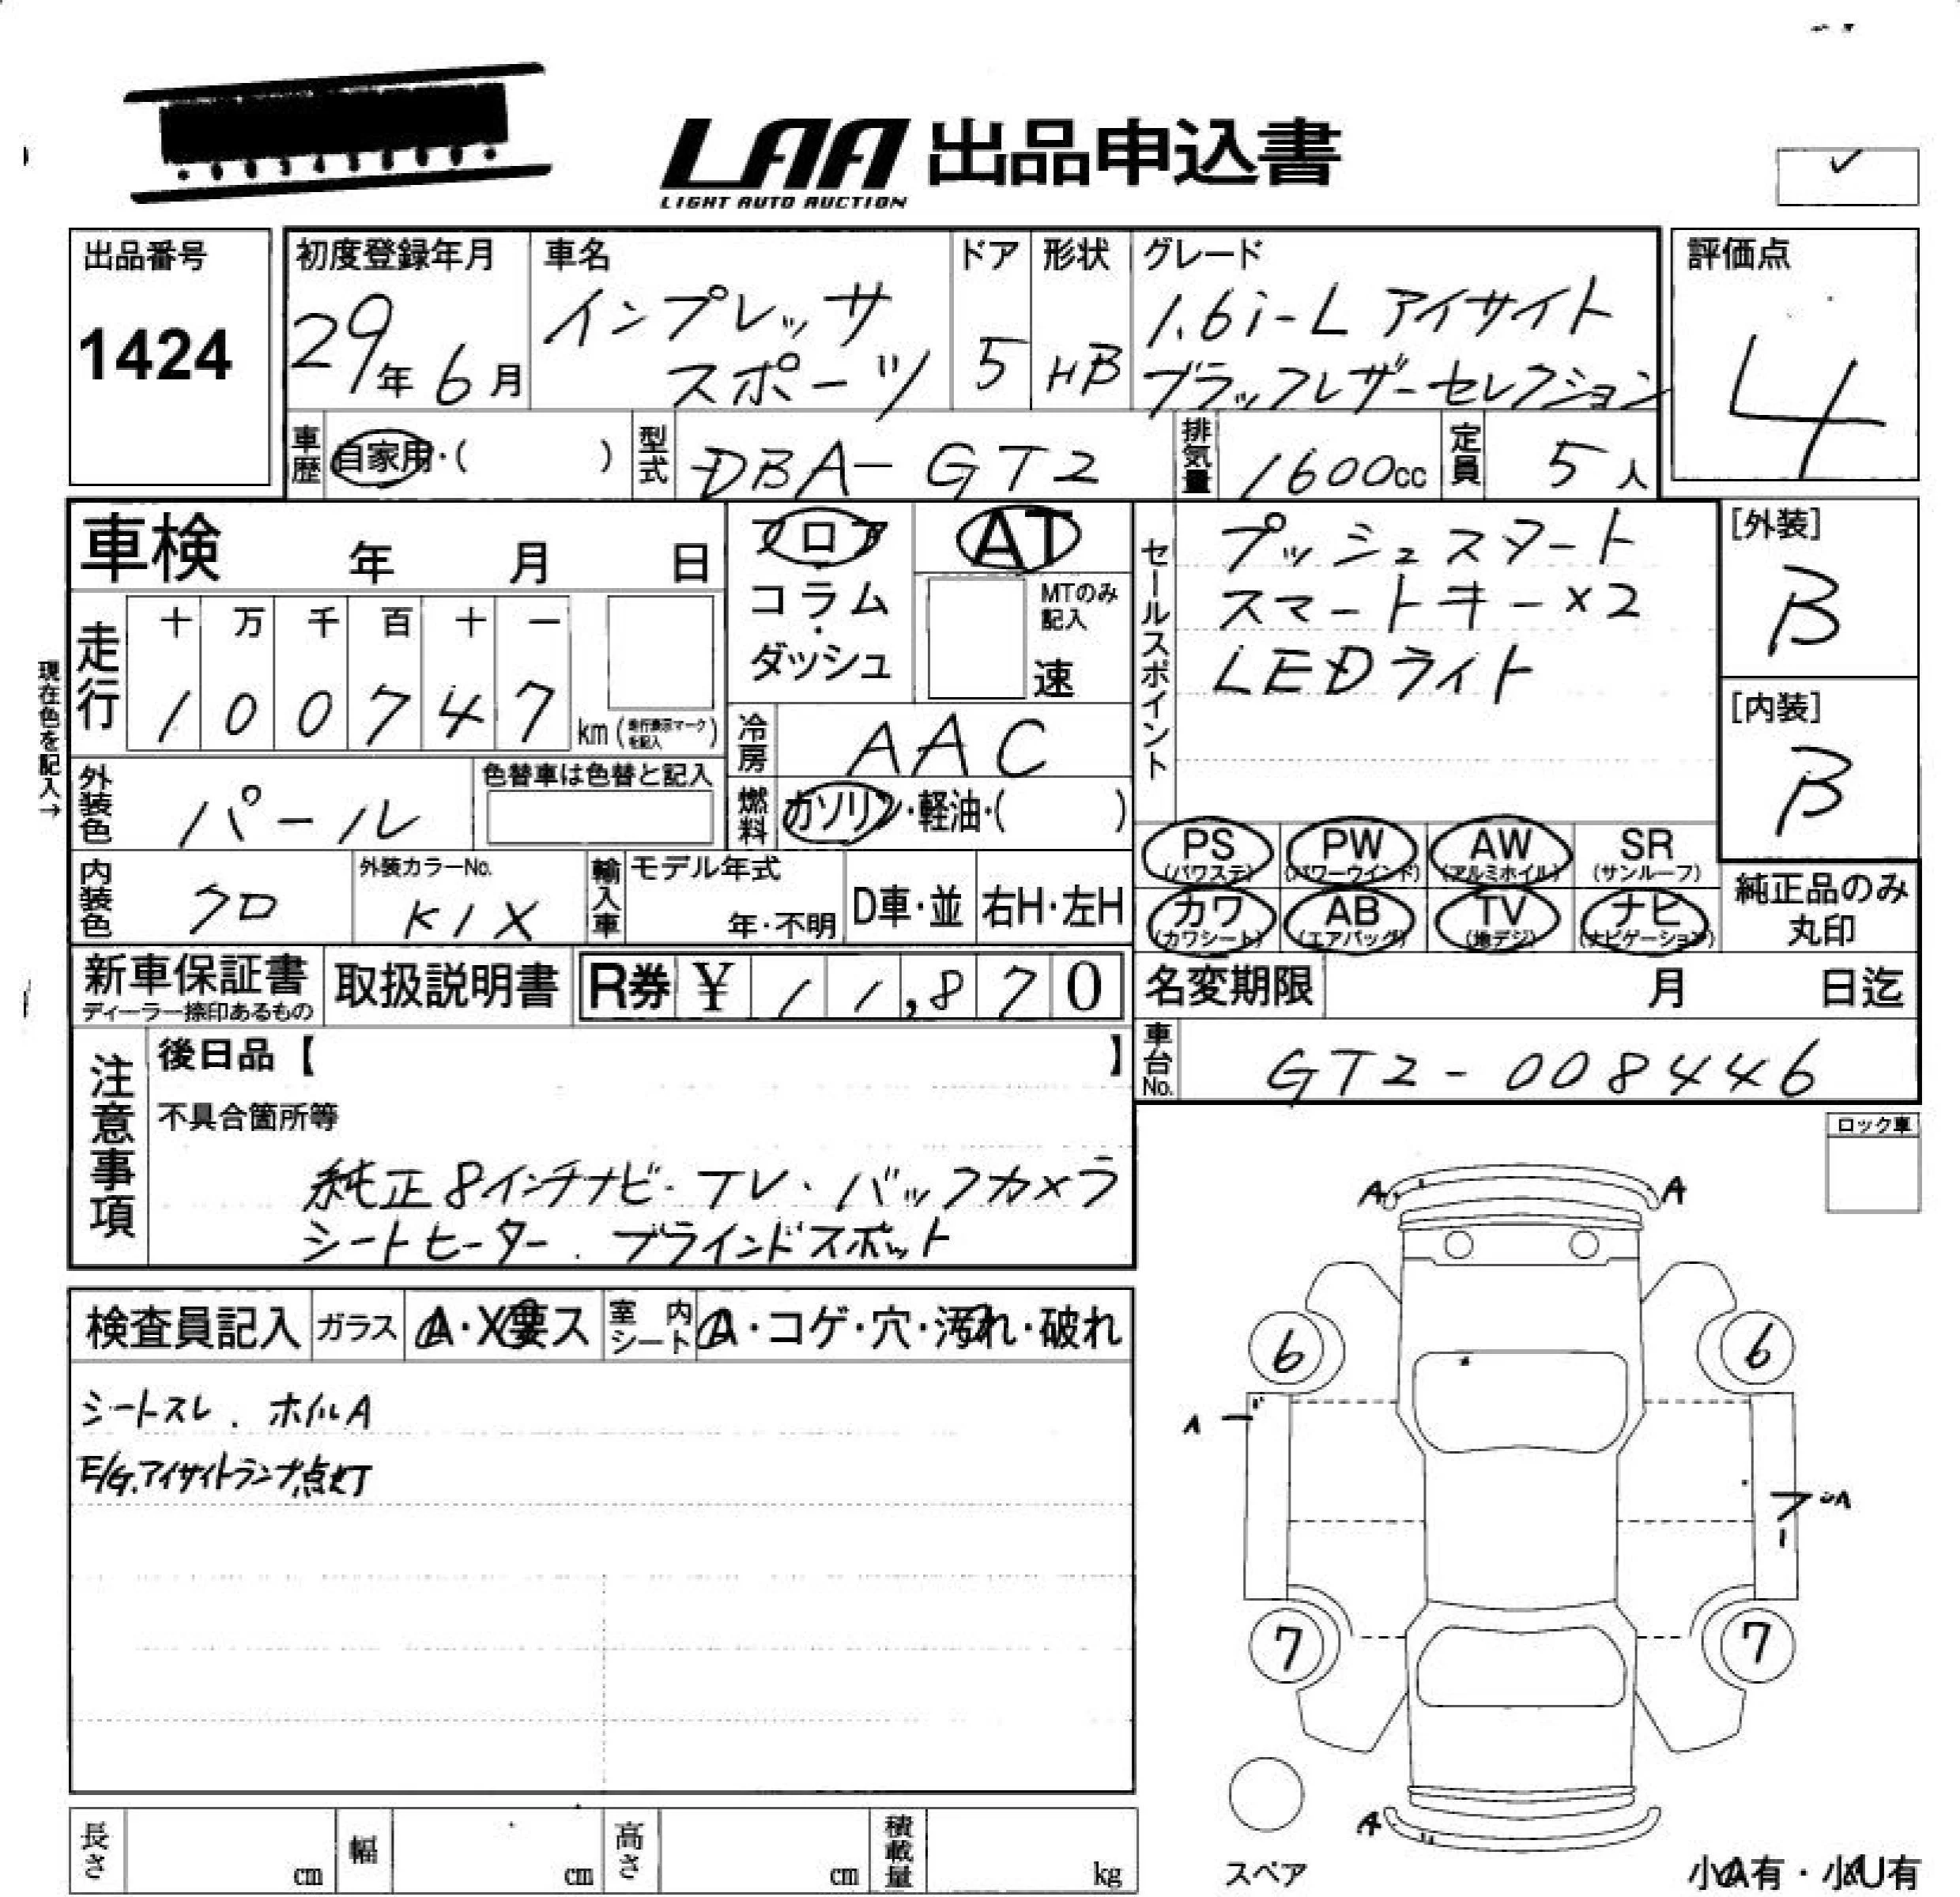 LAA 出品申込書
LIGHT AUTO AUCTION
出品番号
1424
初度登録年月
29年6月
車名
インプレッサ
スポーツ
ドア
5
形状
HB
グレード
1.6i-L アイサイト
ブラックレザーセレクション
評価点
4
車歴
自家用・( )
型式
DBA-GT2
排気量
1600cc
定員
5人
車検 年 月 日
フロア
コラム
ダッシュ
AT
MTのみ
記入
速
セールスポイント
プッシュスタート
スマートキー×2
LEDライト
[外装]
B
[内装]
B
現在色を記入→
走行
十 万 千 百 十 一
1 0 0 7 4 7 km (走行表示マークを記入)
冷房
AAC
外装色
パール
色替車は色替と記入
燃料
ガソリン・軽油・( )
PS (パワステ)
PW (パワーウインド)
AW (アルミホイル)
SR (サンルーフ)
カワ (カワシート)
AB (エアバッグ)
TV (地デジ)
ナビ (ナビゲーション)
純正品のみ
丸印
内装色
クロ
外装カラーNo.
K1X
輸入車
モデル年式
年・不明
D車・並
右H・左H
新車保証書
ディーラー捺印あるもの
取扱説明書
R券 ¥ 11,870
名変期限 月 日迄
車台No.
GT2-008446
注意事項
後日品【 】
不具合箇所等
純正8インチナビ・テレ・バックカメラ
シートヒーター . ブラインドスポット
ロック車
検査員記入
ガラス
A・X要ス
室内シート
A・コゲ・穴・汚れ・破れ
シートスレ . ホイルA
E/G.アイサイトランプ点灯
A A
6 6
A
A
7 7
A
スペア
小A有・小U有
長さ cm
幅 cm
高さ cm
積載量 kg